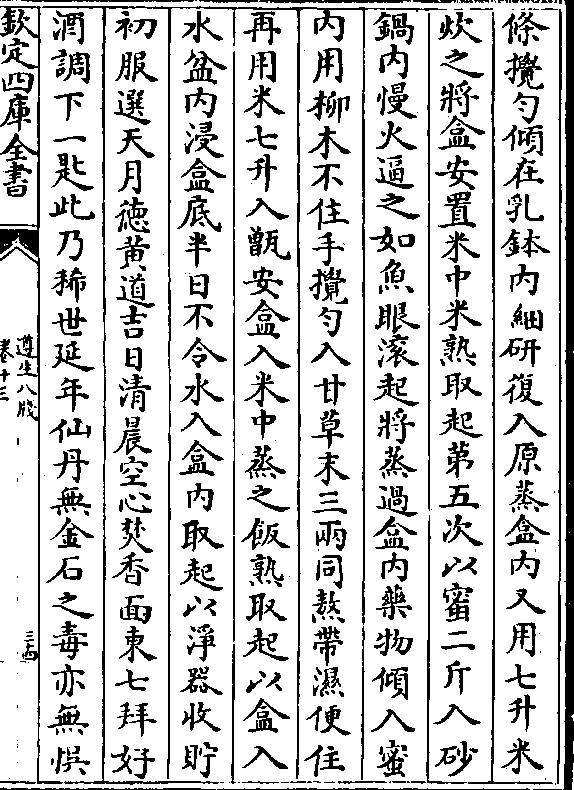 條攪勻傾在乳鉢内細研復入原蒸盒内又用七升米
炊之將盒安置米中米熟取起第五次以蜜二斤入砂
鍋内慢火逼之如魚眼滾起將蒸過盒内藥物傾入蜜
内用柳木不住手攪勻入甘草末三兩同熬帶濕便住
再用米七升入甑安盒入米中蒸之飯熟取起以盒入
水盆内浸盒底半日不令水入盒内取起以淨器收貯
初服選天月德黄道吉日清晨空心焚香面東七拜好
酒調下一匙此乃稀世延年仙丹無金石之毒亦無悞
欽定四庫全書
遵生八牋
卷十三
三四